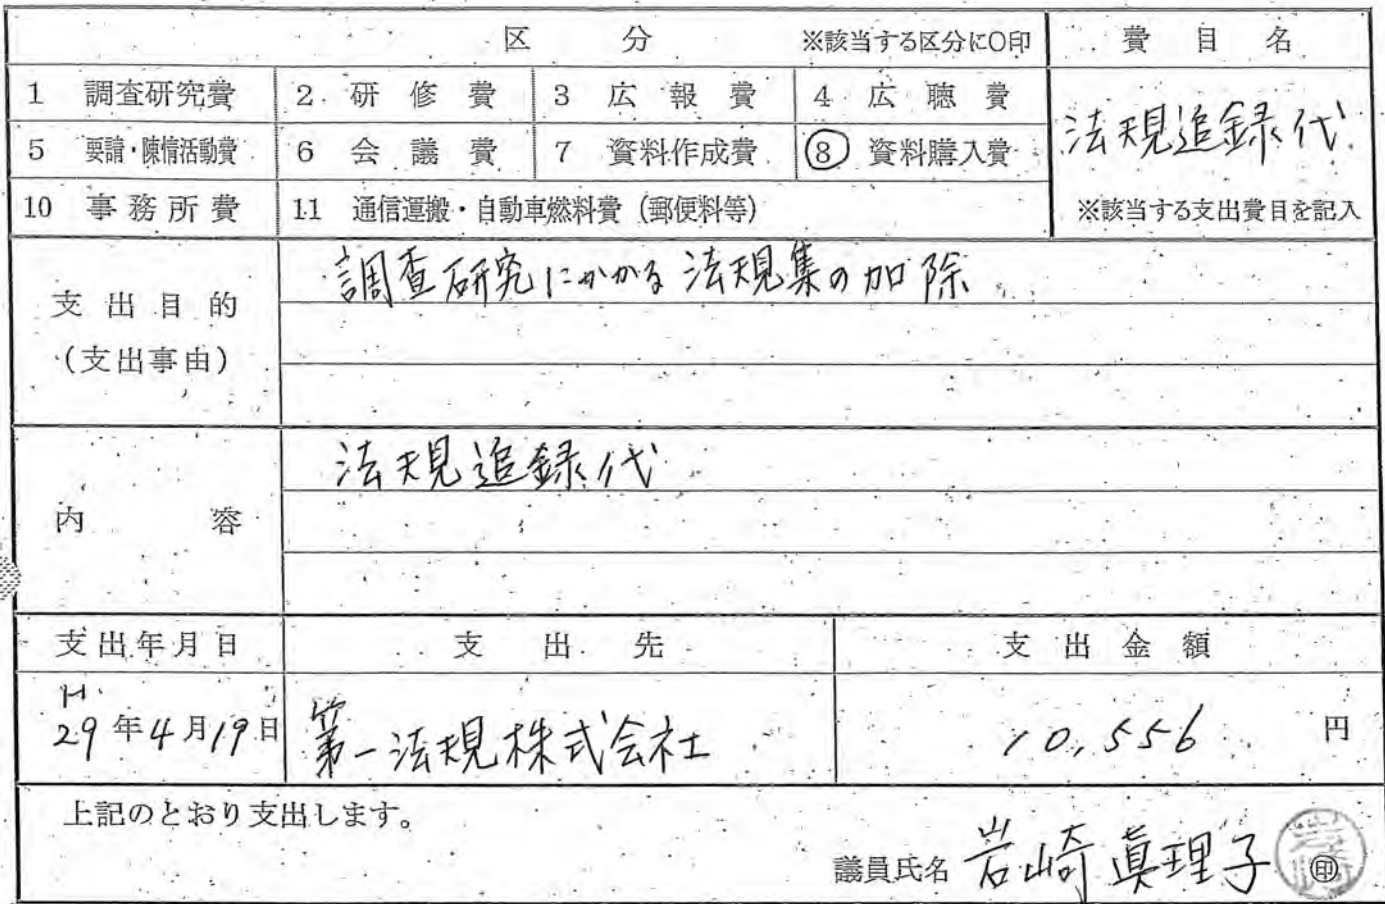 区 分 ※該当する区分に○印 費 目 名
1 調査研究費 2 研 修 費 3 広 報 費 4 広 聴 費
法規追録代
5 要請・陳情活動費 6 会 議 費 7 資料作成費 ⑧ 資料購入費
10 事務所費 11 通信運搬・自動車燃料費(郵便料等) ※該当する支出費目を記入
調査研究にかかる法規集の加除
支出目的
(支出事由)
法規追録代
内 容
支出年月日 支 出 先 支 出 金 額
H
29年4月19日 第一法規株式会社 10,556 円
上記のとおり支出します。
議員氏名 岩崎真理子 ㊞
岩崎